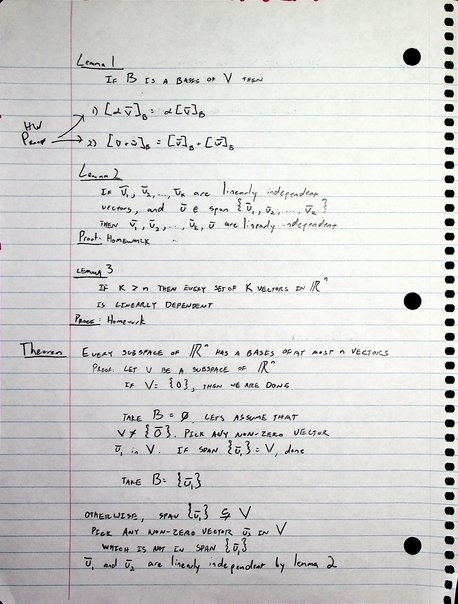 Lemma 1
IF B IS A BASES OF V THEN
1) [α v̄]_B = α[v̄]_B
HW
Proof
2) [v̄+w̄]_B = [v̄]_B + [w̄]_B
Lemma 2
IF v̄₁, v̄₂, ..., v̄ₖ are linearly independent
vectors, and ū ∈ span {v̄₁, v̄₂, ..., v̄ₖ}
THEN v̄₁, v̄₂, ..., v̄ₖ, ū are linearly independent
Proof: Homework
LEMMA 3
IF K > n THEN EVERY SET OF K VECTORS IN ℝⁿ
IS LINEARLY DEPENDENT
PROOF: Homework
Theorem EVERY SUBSPACE OF ℝⁿ HAS A BASES OF AT MOST n VECTORS
PROOF: LET V BE A SUBSPACE OF ℝⁿ
IF V = {0}, THEN WE ARE DONE
TAKE B = ∅. LETS ASSUME THAT
V ≠ {0̄}. PICK ANY NON-ZERO VECTOR
v̄₁ in V. IF SPAN {v̄₁} = V, done
TAKE B = {v̄₁}
OTHERWISE, SPAN {v̄₁} ⊊ V
PICK ANY NON-ZERO VECTOR v̄₂ IN V
WHICH IS NOT IN SPAN {v̄₁}
v̄₁ and v̄₂ are linearly independent by lemma 2